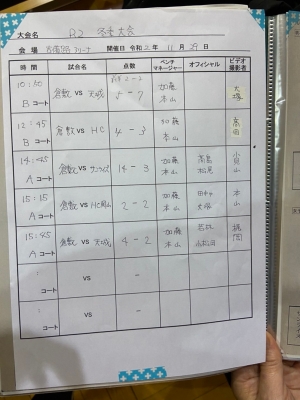 大会名 R2 冬季大会
会場 アリーナ 開催日 令和2年 11月 29日
時間 試合名 点数 ベンチマネージャー オフィシャル ビデオ撮影者
10:50 Bコート 倉敷 VS 天城 5-7 加藤 本山 大塚
12:45 Bコート 倉敷 VS HC 4-3 加藤 本山 高田
14:45 Aコート 倉敷 VS サンライズ 14-3 加藤 本山 高島 松尾
15:15 Aコート 倉敷 VS HC岡山 2-2 加藤 本山 田中 大塚 本山
15:45 Aコート 倉敷 VS 天城 4-2 加藤 本山
: コート VS -
: コート VS -